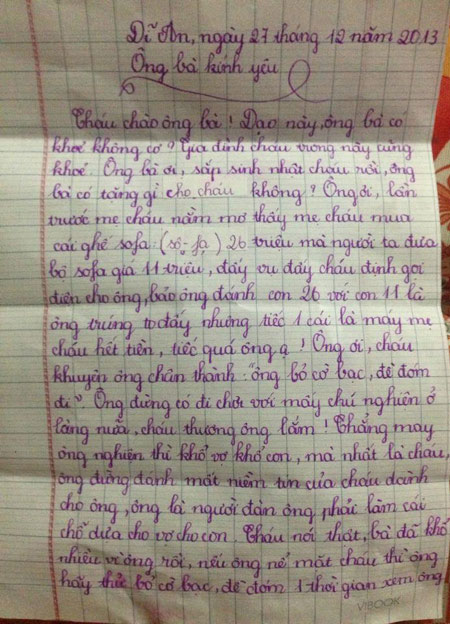 Dĩ An, ngày 27 tháng 12 năm 2013
Ông bà kính yêu
Cháu chào ông bà ! Dạo này, ông bà có
khoẻ không cơ ? Gia đình cháu trong này cũng
khoẻ. Ông bà ơi, sắp sinh nhật cháu rồi, ông
bà có tặng gì cho cháu không ? Ông ơi, lần
trước mẹ cháu nằm mơ thấy mẹ cháu mua
cái ghế sofa (sô-fa) 26 triệu mà người ta đưa
bộ sofa giá 11 triệu, đấy vu đấy cháu định gọi
điện cho ông, bảo ông đánh con 26 với con 11 là
ông trúng to đấy nhưng tiếc 1 cái là máy mẹ
cháu hết tiền, tiếc quá ông ạ ! Ông ơi, cháu
khuyên ông chân thành: "ông bỏ cờ bạc, đề đóm
đi". Ông đừng có đi chơi với mấy chú nghiện ở
làng nữa, cháu thương ông lắm ! Chẳng may
ông nghiện thì khổ vợ khổ con, mà nhất là cháu,
ông đừng đánh mất niềm tin của cháu dành
cho ông, ông là người đàn ông phải làm cái
chỗ dựa cho vợ cho con. Cháu nói thật, bà đã khổ
nhiều vì ông rồi, nếu ông nể mặt cháu thì ông
hãy thử bỏ cờ bạc, đề đóm 1 thời gian xem ông
VIBOOK